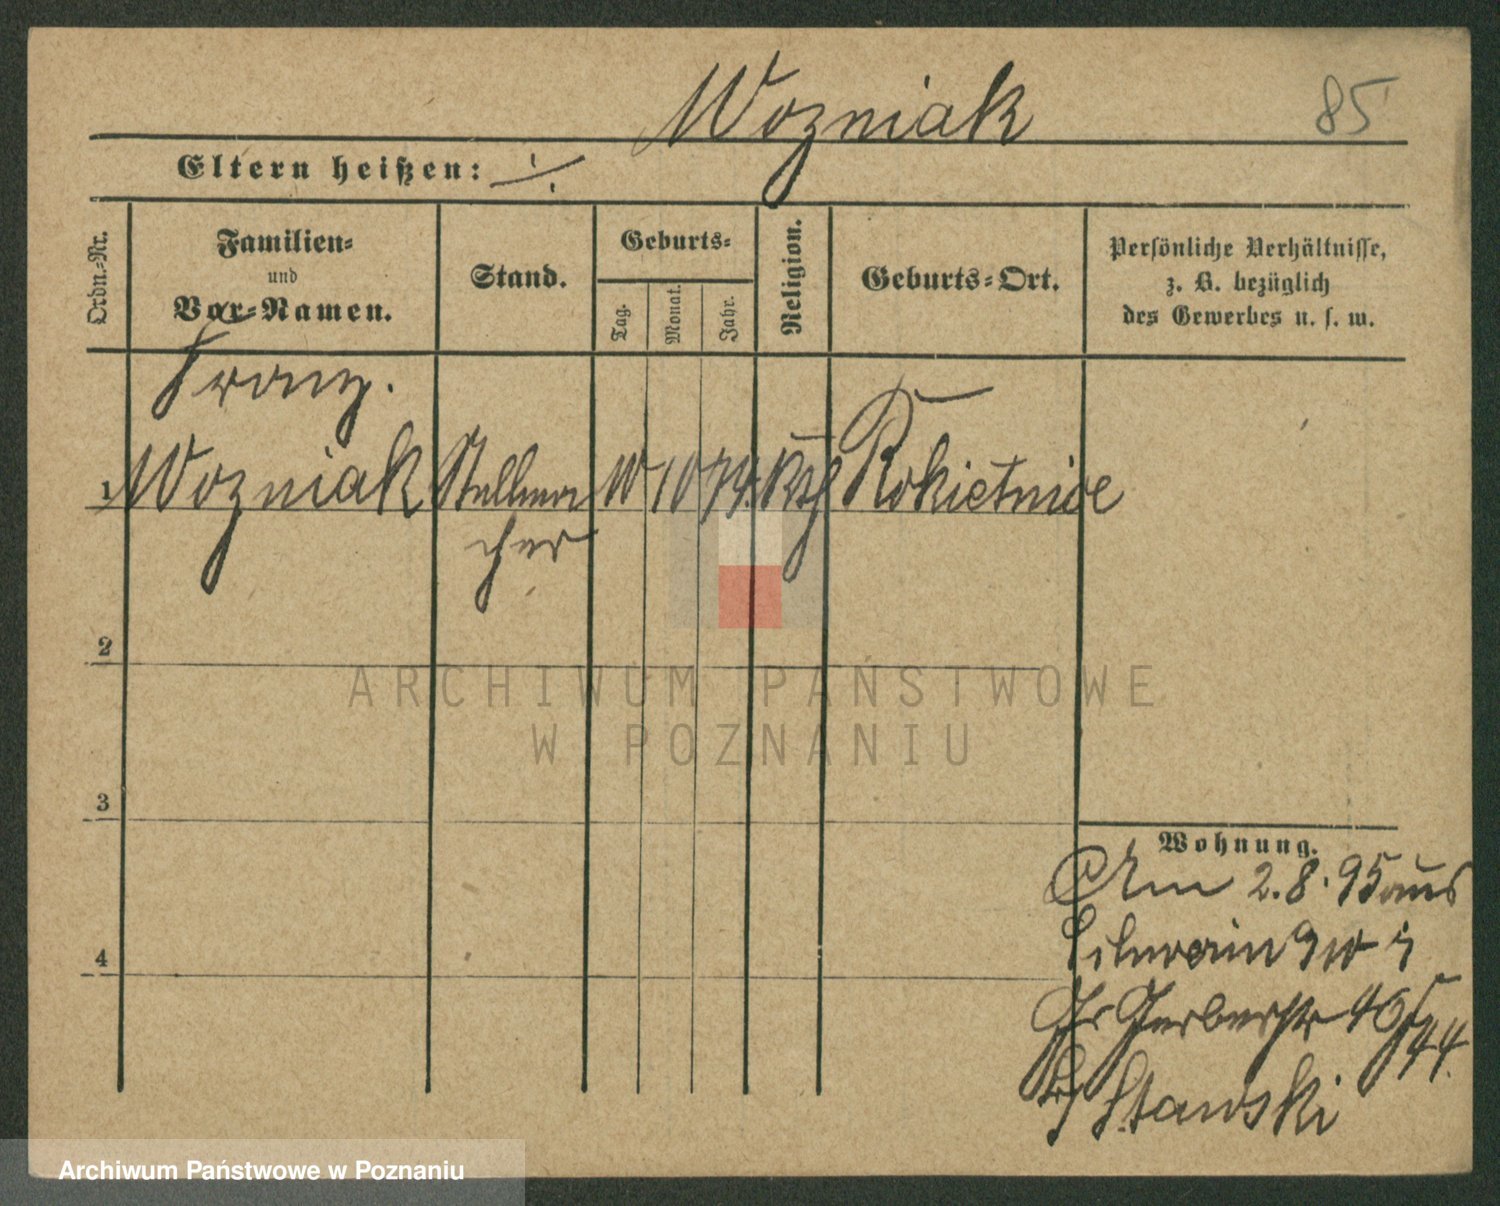 Wozniak
85
Eltern heißen: ./.
Ordn.-Nr.
Familien-
und
Vor-Namen.
Stand.
Geburts-
Tag.
Monat.
Jahr.
Religion.
Geburts-Ort.
Persönliche Verhältnisse,
z. B. bezüglich
des Gewerbes u. s. w.
Franz.
1 Wozniak Stellma 10 74. kth Rokietnice
cher
2
ARCHIWUM PAŃSTWOWE
W POZNANIU
3
Wohnung.
Am 2.8.95 aus
Schwerin
4
Gr Gerberstr 40
b/ Stawski
Archiwum Państwowe w Poznaniu